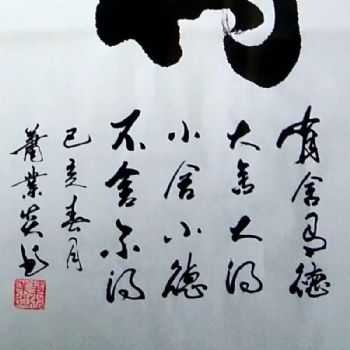 有舍有德
大舍大得
小舍小德
不舍不得
己亥春月
蕭業炎